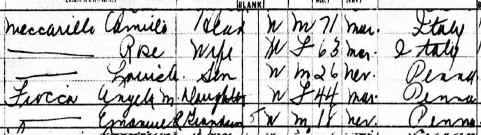 BLANK
Meccarillo Camillo Head W M 71 Mar. Italy
—— Rose Wife W F 63 Mar. Italy
—— Son W M 26 Nev. Penna
Fiocca Angela M. Daughter W F 44 Mar. Penna
—— Emanuel Grandson W M 18 Nev. Penna